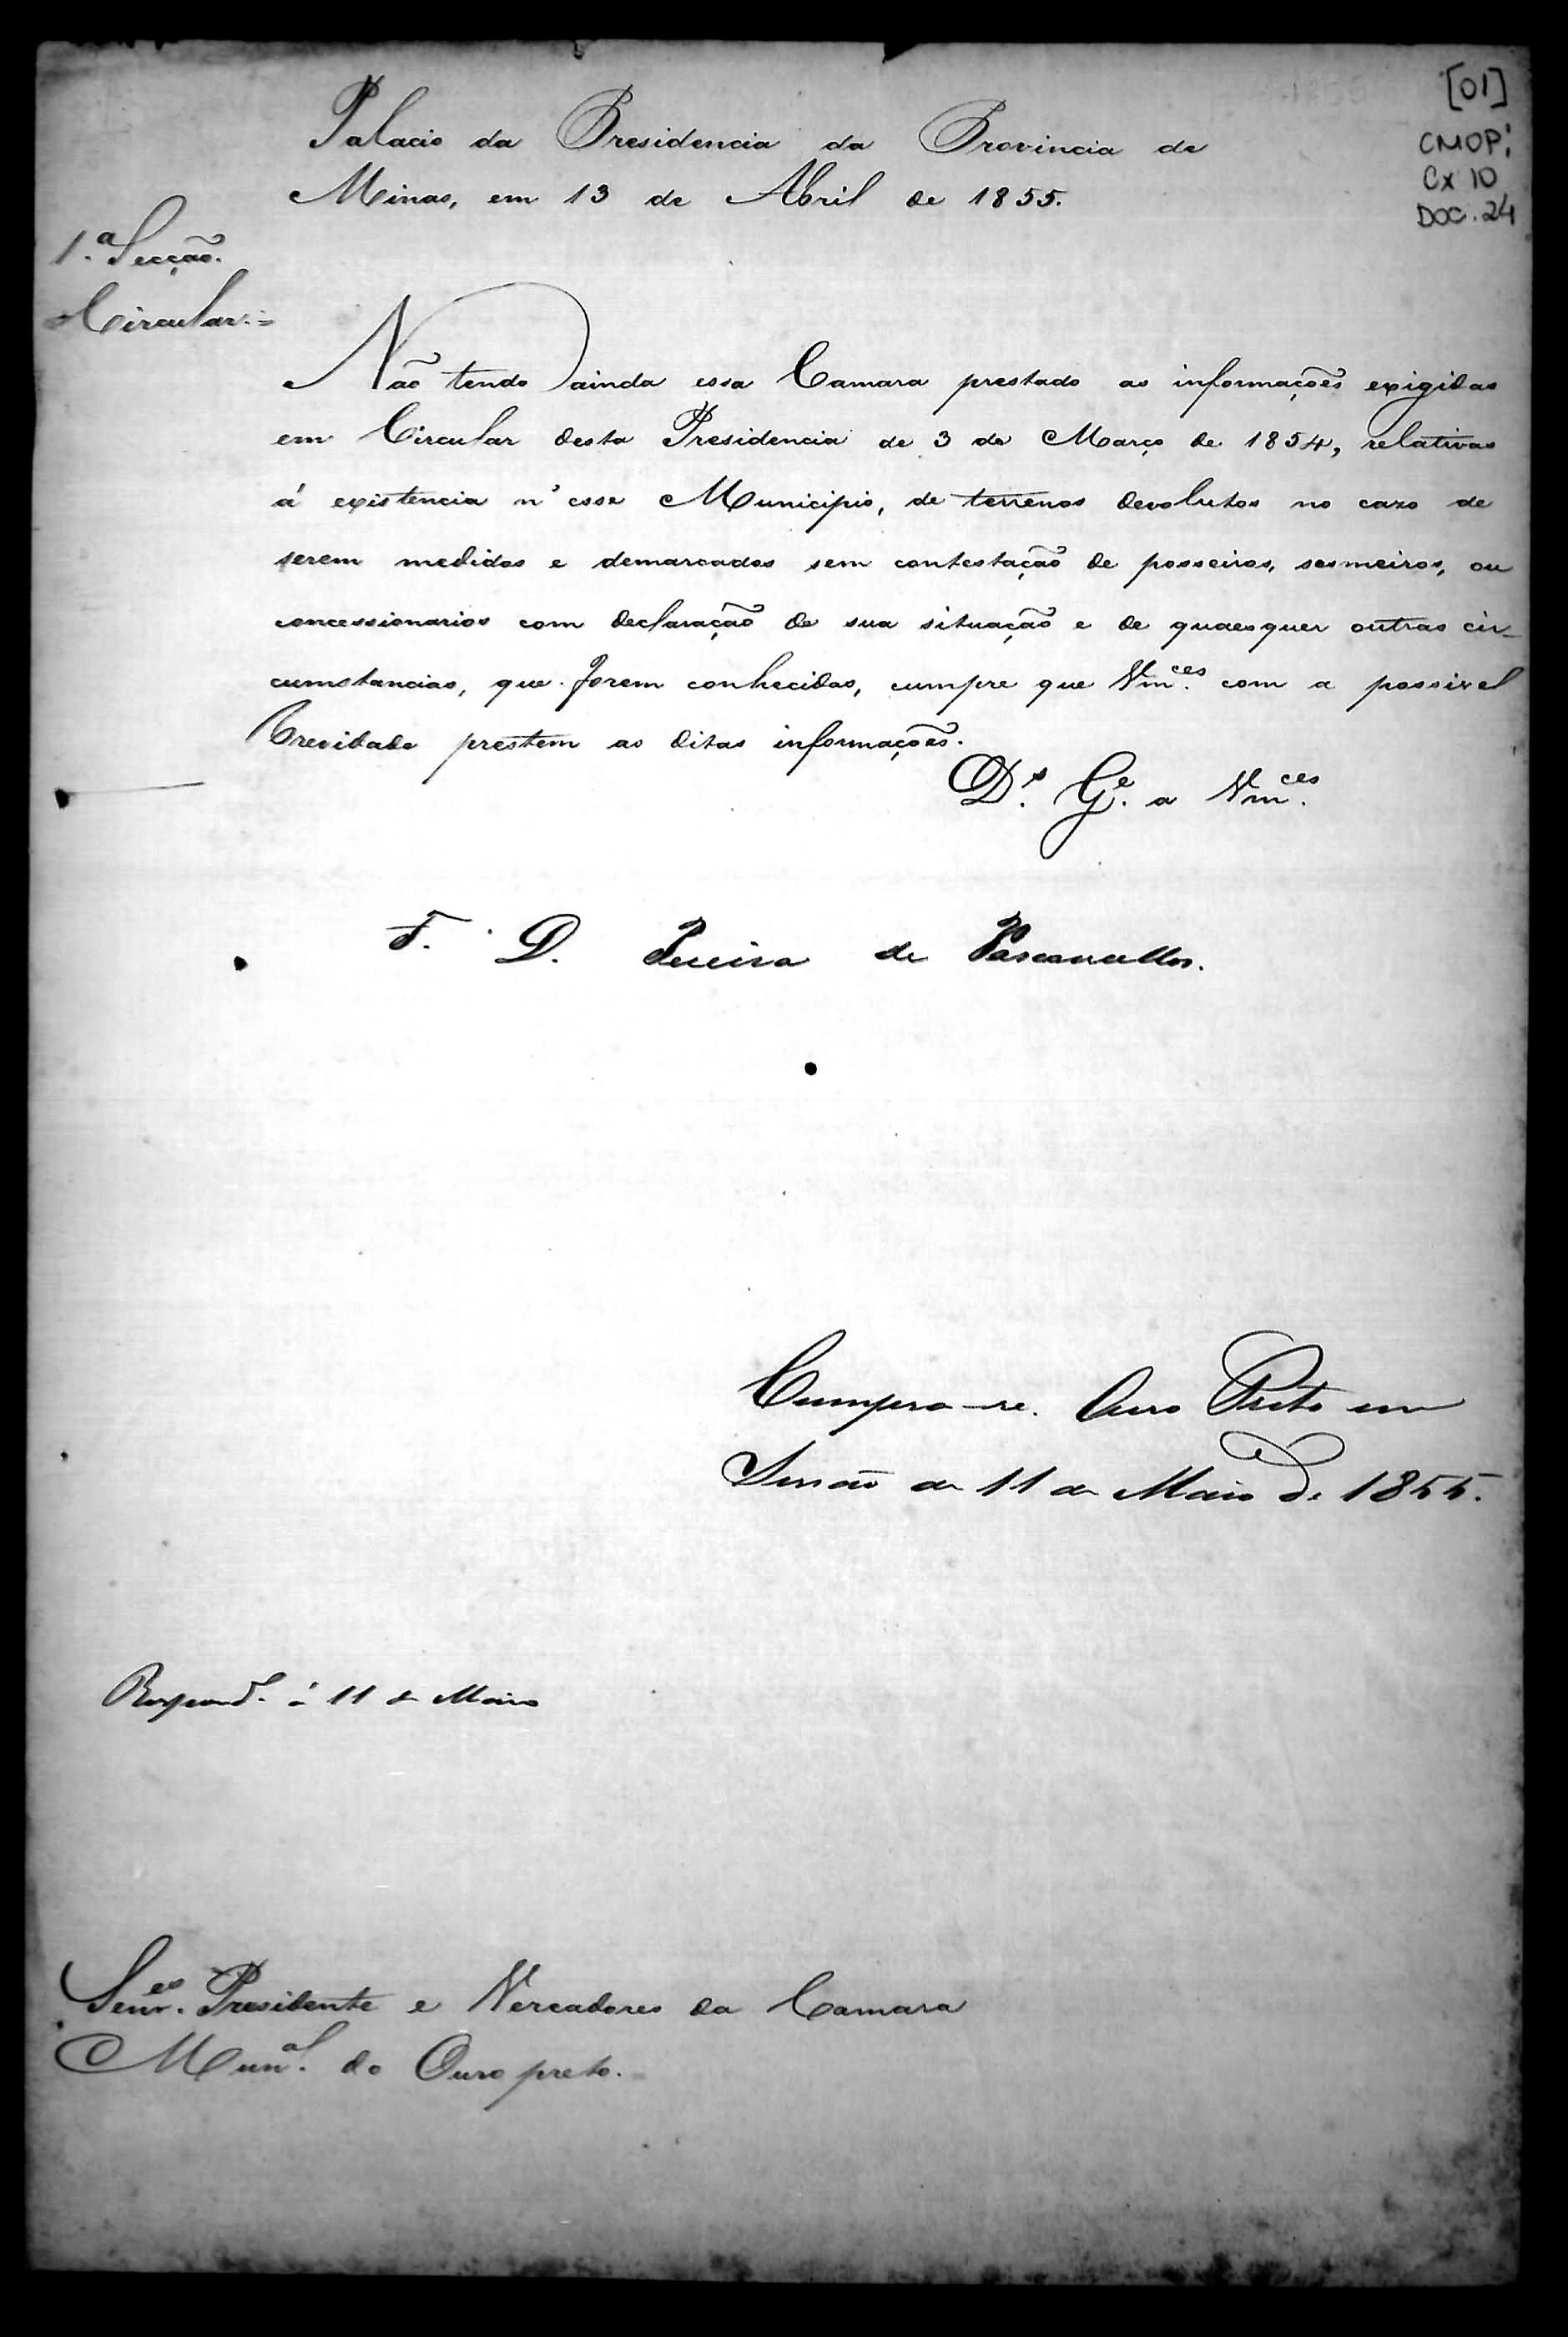 [01]
CMOP:
Cx 10
DOC. 24
Palacio da Presidencia da Provincia de
Minas, em 13 de Abril de 1855.
1.ª Secção.
Circular:=
Não tendo ainda essa Camara prestado as informações exigidas
em Circular desta Presidencia de 3 de Março de 1854, relativas
á existencia n'esse Municipio, de terrenos devolutos no cazo de
serem medidos e demarcados sem contestação de posseiros, sesmeiros, ou
concessionarios com declaração de sua situação e de quaesquer outras cir-
cumstancias, que forem conhecidas, cumpre que Vm.ces com a possivel
brevidade prestem as ditas informações.
D.s G.e a Vm.ces
F. D. Pereira de Vasconcellos.
Cumpra-se. Ouro Preto em
Sessão de 11 de Maio de 1855.
Respond.º á 11 de Maio
Senr.es Presidente e Vereadores da Camara
Mun.al do Ouro preto.